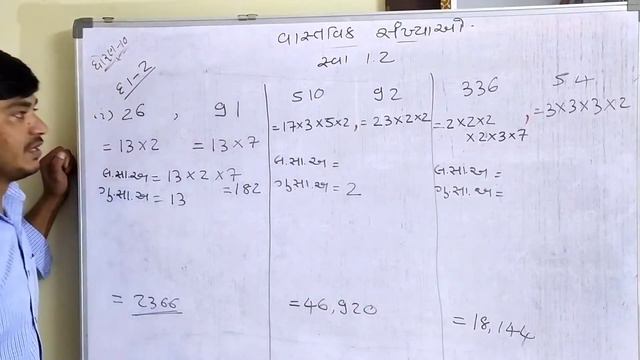 ધોરણ-૧૦
દા-2
વાસ્તવિક સંખ્યાઓ.
સ્વા 1.2
i) 26 , 91
= 13×2 = 13×7
લ.સા.અ = 13×2×7
=182
ગુ.સા.અ = 13
= 2366
510 92
=17×3×5×2, = 23×2×2
લ.સા.અ =
ગુ.સા.અ = 2
=46,920
336 54
=2×2×2
×2×3×7
, =3×3×3×2
લ.સા.અ =
ગુ.સા.અ =
=18,144